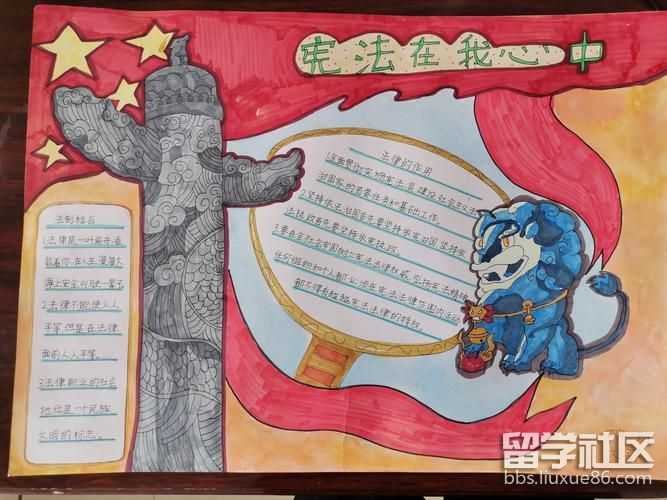 宪法在我心中
法制格言
1.法律是一叶扁舟,承
载着你,在人生漫漫大
海上安全的驶一辈子
2.法律不能使人人
平等,但是在法律
面前人人平等。
3.法律职业的社会
地位是一个民族
文明的标志。
法律的作用
1.全面贯彻实施宪法是建设社会主义法
治国家的首要任务和基础工作。
2.坚持依法治国首先要坚持依宪治国,坚持依
法执政首先要坚持依宪执政。
3.要在全社会牢固树立宪法法律权威,弘扬宪法精神
任何组织和个人都必须在宪法法律范围内活动
都不得有超越宪法法律的特权。
留学社区
bbs.liuxue86.com